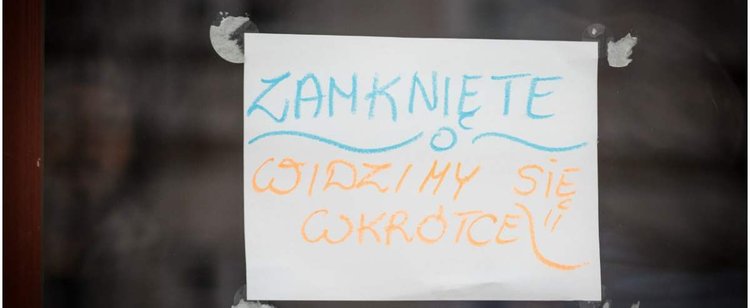 ZAMKNIĘTE
WIDZIMY SIĘ
WKRÓTCE!!